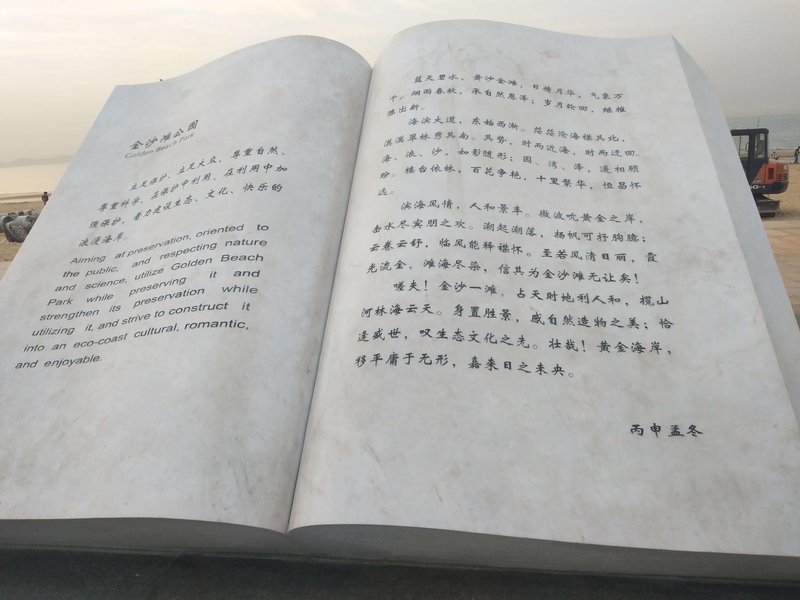 金沙滩公园
Golden Beach Park
立足保护，立足大众，尊重自然、
尊重科学，在保护中利用、在利用中加
强保护，着力建设生态、文化、快乐的
浪漫海岸。
Aiming at preservation, oriented to
the public, and respecting nature
and science, utilize Golden Beach
Park while preserving it and
strengthen its preservation while
utilizing it, and strive to construct it
into an eco-coast cultural, romantic,
and enjoyable.
蓝天碧水，黄沙金滩，日精月华，气象万
千。烟雨春秋，承自然恩泽；岁月轮回，继推
陈出新。
海滨大道，东始西渐。茫茫沧海襟其北，
漠漠翠林秀其南。其势，时而近海，时而迂回。
海、浪、沙，如影随形；园、湾、泽，遥相顾
盼。楼台依林，百花争艳，十里繁华，恒昌怀
远。
滨海风情，人和景丰。微波吮黄金之岸，
击水尽宾朋之欢。潮起潮落，扬帆可抒胸臆；
云卷云舒，临风能释襟怀。至若风清日丽，霞
光流金，滩海尽染，信其为金沙滩无让矣！
嗟夫！金沙一滩，占天时地利人和，揽山
河林海云天。身置胜景，感自然造物之美；恰
逢盛世，叹生态文化之先。壮哉！黄金海岸，
移平庸于无形，嘉来日之未央。
丙申孟冬